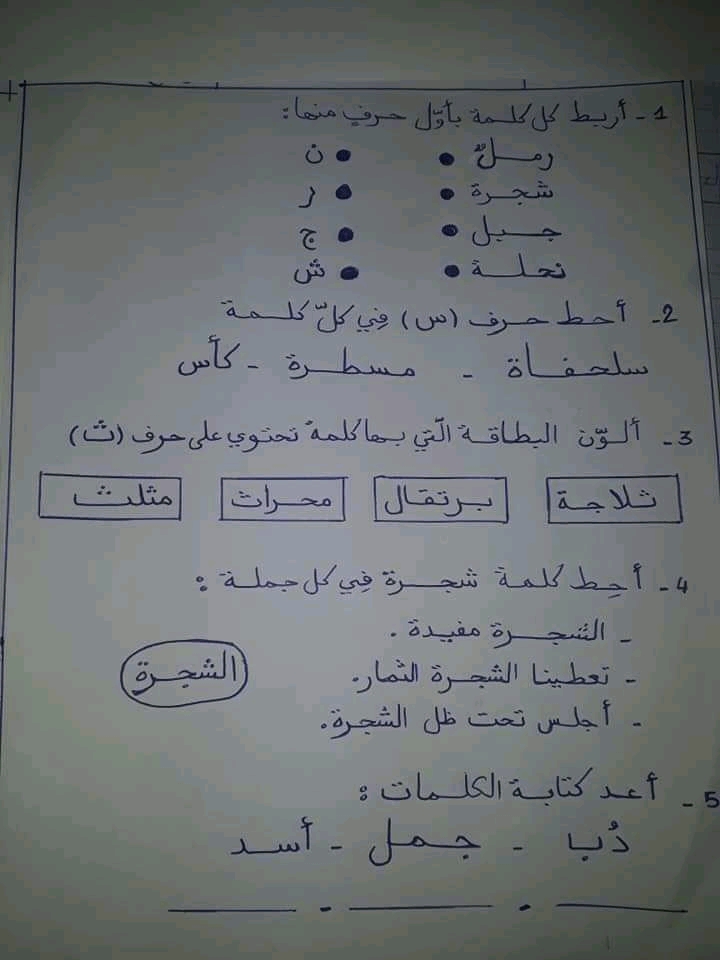 1- أربط كل كلمة بأوّل حرف منها:
رمـلٌ • • ن
شجرة • • ر
جـبـل • • ج
نحلـة • • ش
2- أحط حرف (س) فِي كلّ كلمة
سلحفـاة - مسطـرة - كأس
3- ألـوّن البطاقة الّتي بها كلمة تحتوي على حرف (ث)
ثلاجة برتقال محراث مثلث
4- أحِط كلمة شجـرة فِي كل جملة :
- الشجـرة مفيدة .
- تعطينا الشجرة الثمار.
الشجـرة
- أجلس تحت ظل الشجرة.
5- أعد كتابة الكلـمات :
دُب - جـمل - أسد